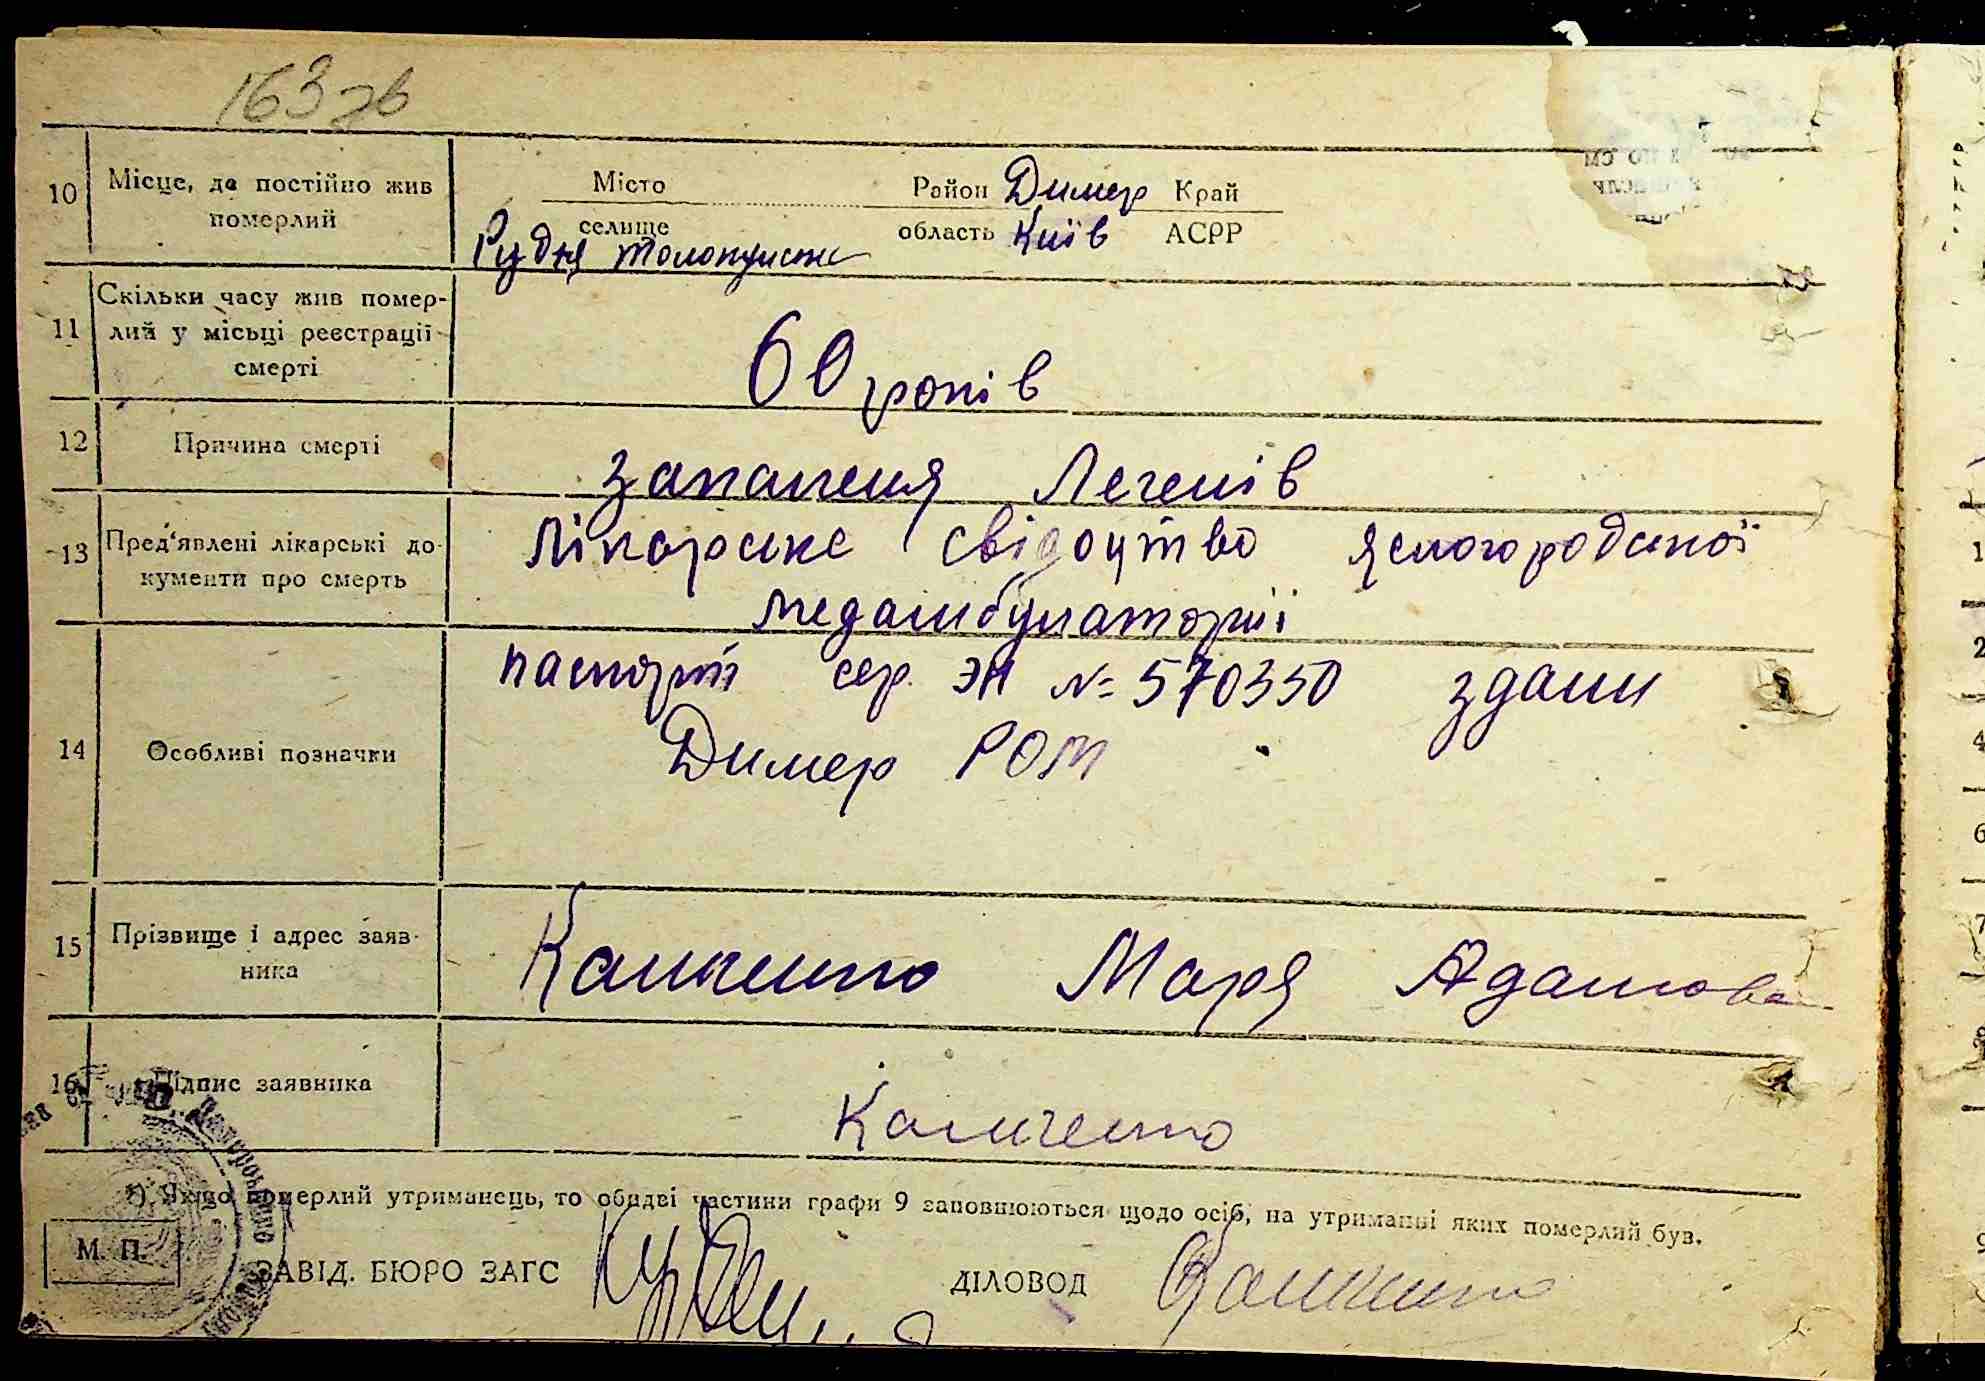 163 зв
10 Місце, де постійно жив померлий
Місто Район Димер Край
селище область Київ АСРР
Рудня Толокунськ
11 Скільки часу жив помер-
лий у місьці реєстрації
смерті
60 років
12 Причина смерті
Запаленя Легенів
13 Пред'явлені лікарські до-
кументи про смерть
Лікарське свідоцтво Ясногородської
медамбулаторії
14 Особливі позначки
паспорт сер. ЭН № 570350 здани
Димер РОМ
15 Прізвище і адрес заяв-
ника
Маря Адамова
16 Підпис заявника
*) Якщо померлий утриманець, то обидві частини графи 9 заповнюються щодо осіб, на утриманні яких померлий був.
М. П.
ЗАВІД. БЮРО ЗАГС ДІЛОВОД